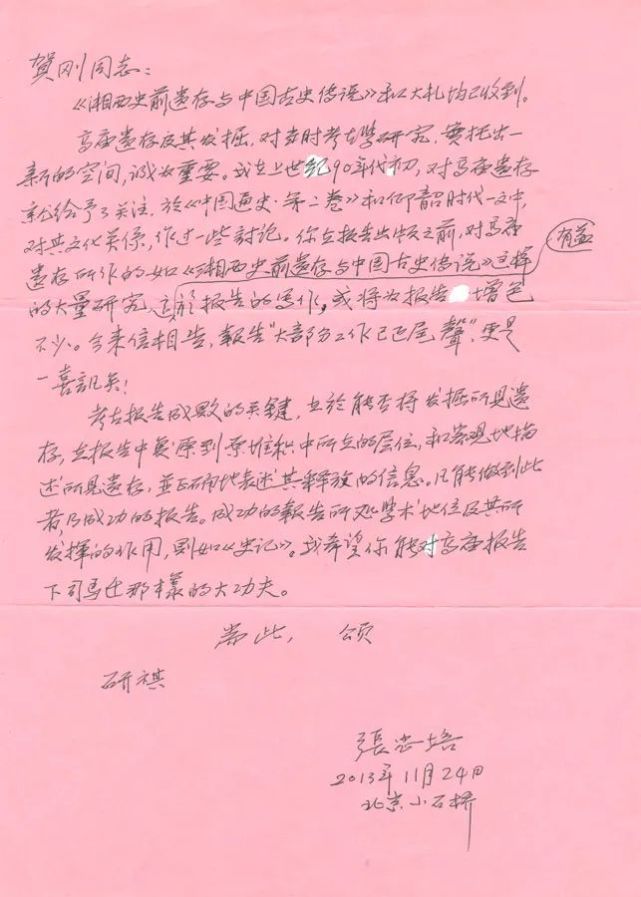 賀刚同志：
《湘西史前遗存与中国古史传说》和大札均已收到。
高庙遗存及其发掘，对当时考古学研究，実拓出一
新的空间，诚为重要。我在上世纪90年代初，对高庙遗存
就给予了关注，於《中国通史·第二卷》和仰韶时代一文中，
对其文化关係，作过一些討论。你在报告出版之前，对高庙
有益
遗存所作的如《湘西史前遗存与中国古史传说》这样
的大量研究，这於报告的写作，或将为报告增色
不少。今来信相告，報告“大部份工作已近尾聲”，更是
一喜訊矣！
考古报告成败的关键，在於能否将发掘所见遗
存，在报告中复原到原堆积中所在的层位，和客观地描
述所见遗存，並正确地表述其释放的信息。凡能做到此
者，乃成功的报告。成功的報告所处学术地位及其所
发揮的作用，則如《史记》。我希望你能对高庙报告
下司马迁那樣的大功夫。
耑此，頌
研祺
張忠培
2013年11月24日
北京小石桥